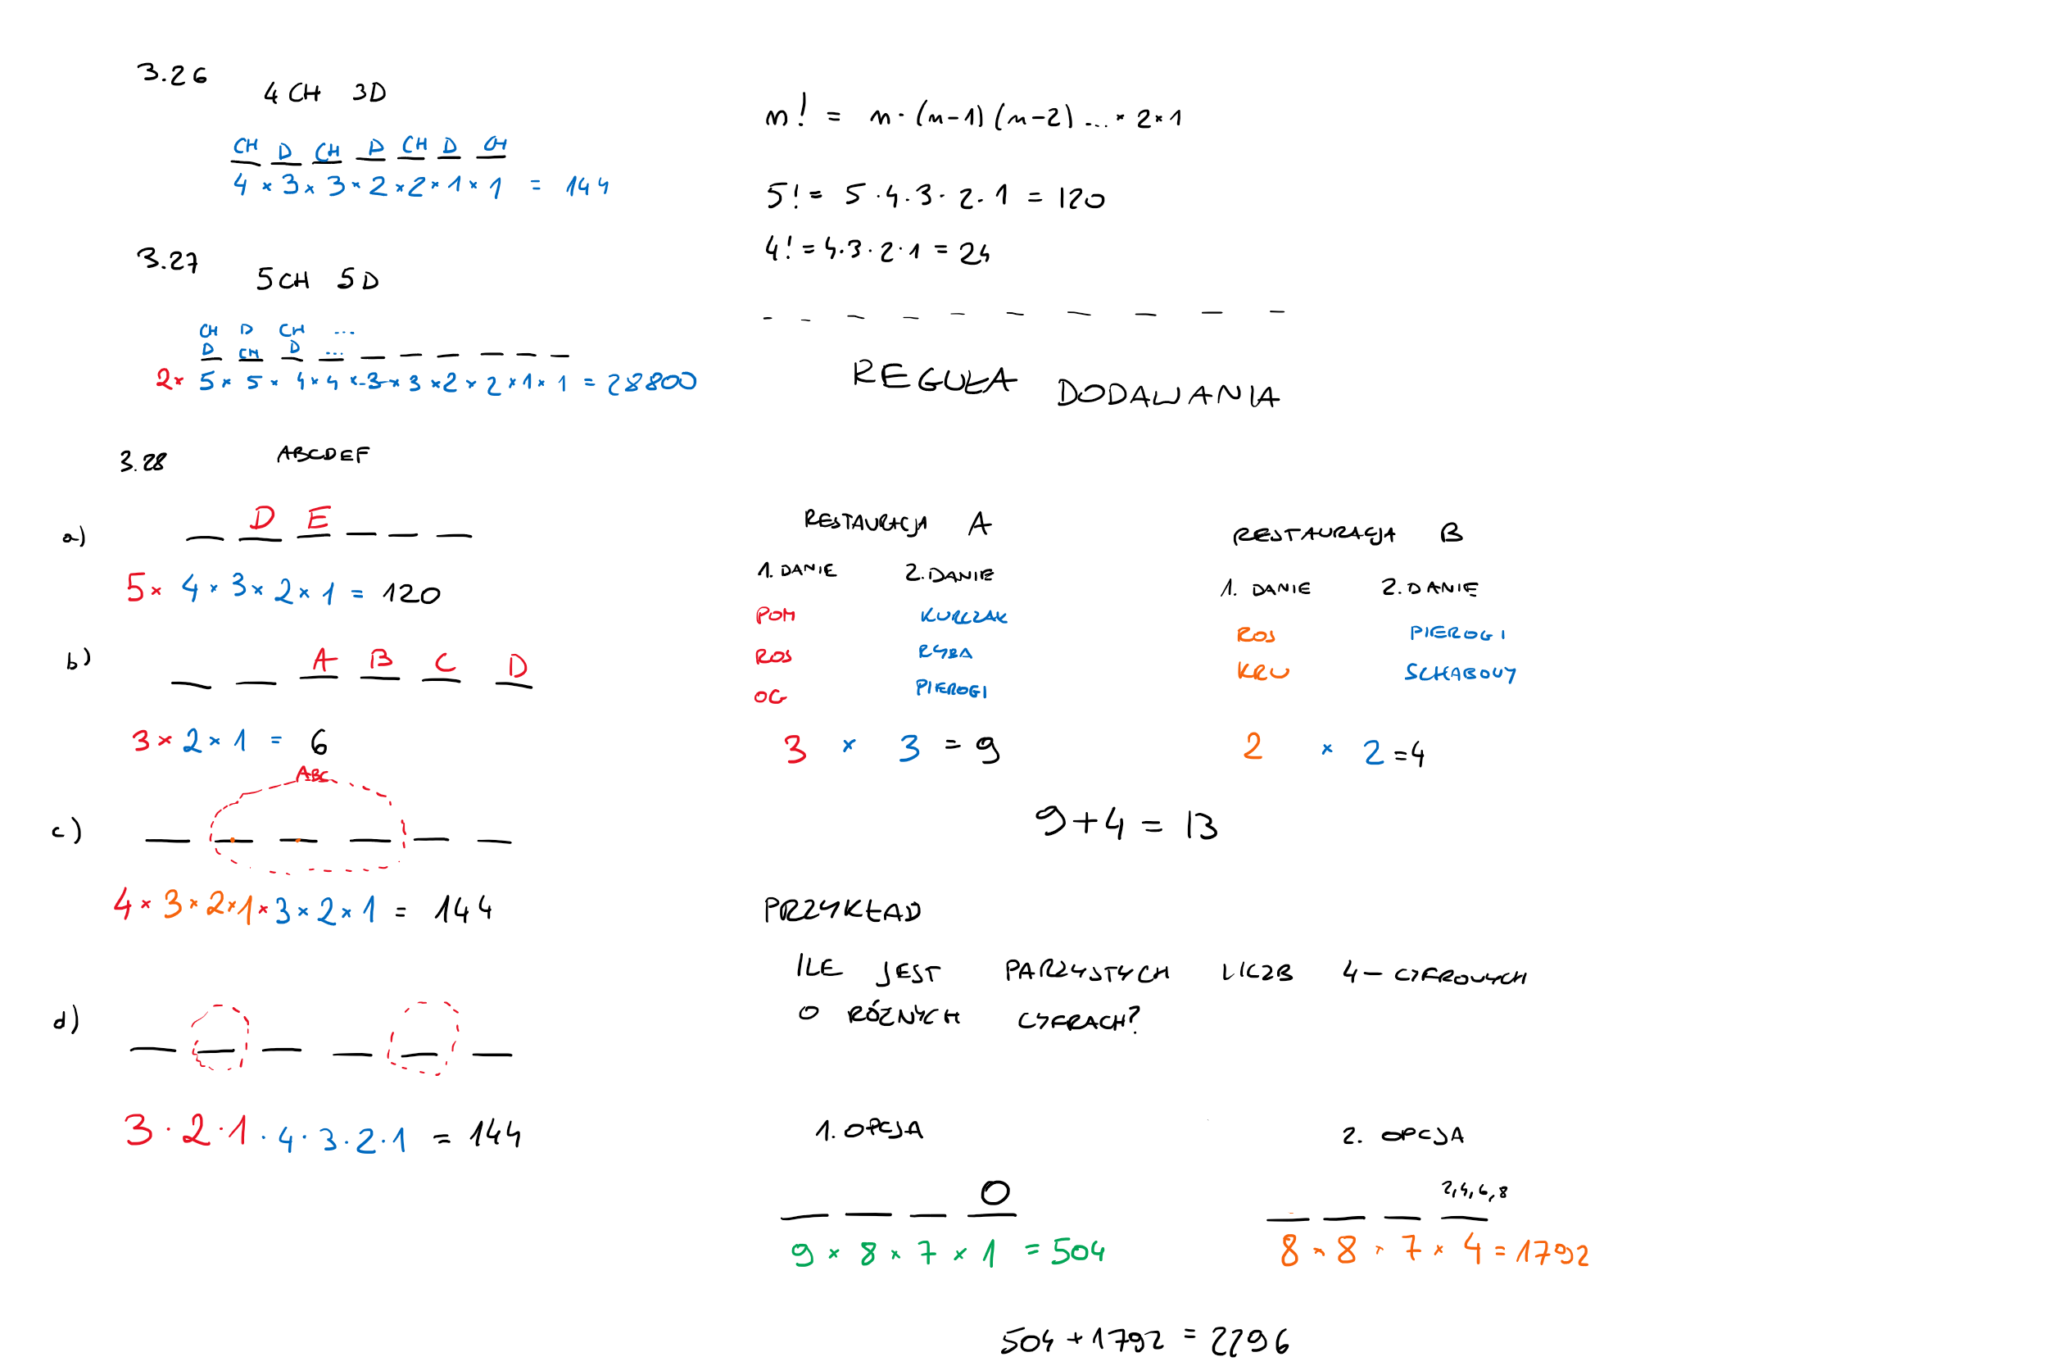 3.26
4 CH 3D
CH D CH D CH D CH
4 × 3 × 3 × 2 × 2 × 1 × 1 = 144
3.27
5CH 5D
CH D CH ...
D CH D ...
2× 5 × 5 × 4 × 4 × 3 × 3 × 2 × 2 × 1 × 1 = 28800
3.28 ABCDEF
a) D E
5 × 4 × 3 × 2 × 1 = 120
b) A B C D
3 × 2 × 1 = 6
ABC
c)
4 × 3 × 2 × 1 × 3 × 2 × 1 = 144
d)
3 · 2 · 1 · 4 · 3 · 2 · 1 = 144
n! = n · (n-1) (n-2) ... · 2 · 1
5! = 5 · 4 · 3 · 2 · 1 = 120
4! = 4 · 3 · 2 · 1 = 24
REGUŁA DODAWANIA
RESTAURACJA A
1. DANIE 2. DANIE
POM KURCZAK
ROS RYBA
OG PIEROGI
3 × 3 = 9
RESTAURACJA B
1. DANIE 2. DANIE
ROS PIEROGI
KRU SCHABOWY
2 × 2 = 4
9 + 4 = 13
PRZYKŁAD
ILE JEST PARZYSTYCH LICZB 4 - CYFROWYCH
O RÓŻNYCH CYFRACH?
1. OPCJA
0
9 × 8 × 7 × 1 = 504
2. OPCJA
2, 4, 6, 8
8 × 8 × 7 × 4 = 1792
504 + 1792 = 2296